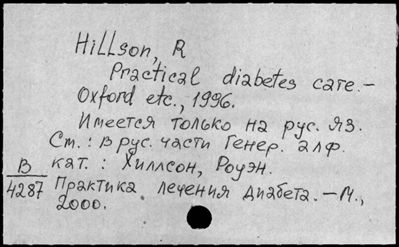 Hillson, R
Practical diabetes care.-
Oxford etc., 1996.
Имеется только на рус. яз.
См.: в рус. части Генер. алф.
кат.: Хиллсон, Роуэн.
В
4287
Практика лечения диабета. - М.,
2000.